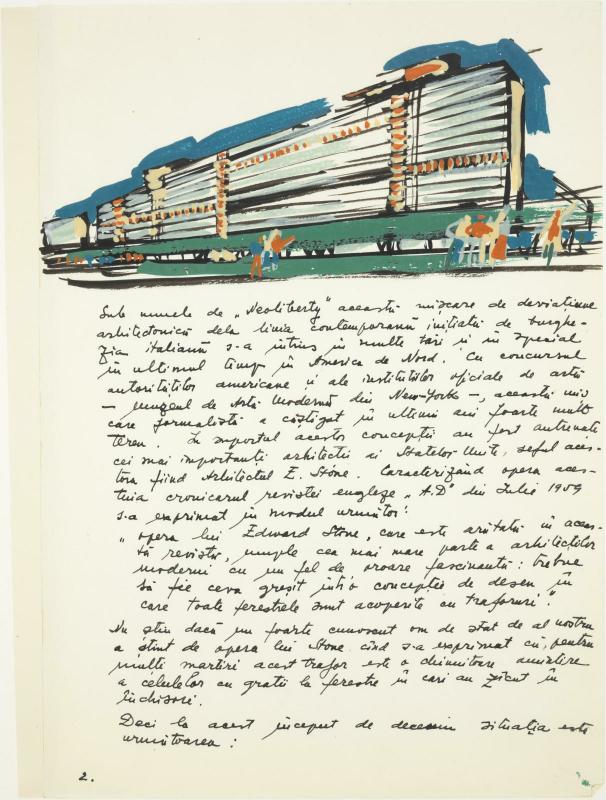 Sub numele de „Neoliberty" această mișcare de deviațiune
arhitectonică dela linia contemporană inițiată de burghe-
zia italiană s-a întins în multe țări și în special
în ultimul timp în America de Nord. Cu concursul
autorităților americane și ale instituțiilor oficiale de artă
— muzeul de Artă Modernă din New-York —, această miș
care formalistă a câștigat în ultimii ani foarte mult
teren. În suportul acestor concepții au fost antrenate
cei mai importanți arhitecți ai Statelor Unite, șeful aces-
tora fiind Arhitectul E. Stone. Caracterizând opera aces-
tuia cronicarul revistei engleze „A.D" din Iulie 1959
s-a exprimat în modul următor:
„opera lui Edward Stone, care este arătată în aceas-
tă revistă, umple cea mai mare parte a arhitecților
moderni cu un fel de oroare fascinantă: trebue
să fie ceva greșit într'o concepție de desen în
care toate ferestrele sunt acoperite cu traforuri".
Nu știu dacă un foarte cunoscut om de stat de al nostru
a știut de opera lui Stone când s-a exprimat că, pentru
mulți martiri acest trafor este o amintire
a celulelor cu gratii la ferestre în cari au zăcut în
închisori.
Deci la acest început de deceniu situația este
următoarea:
2.